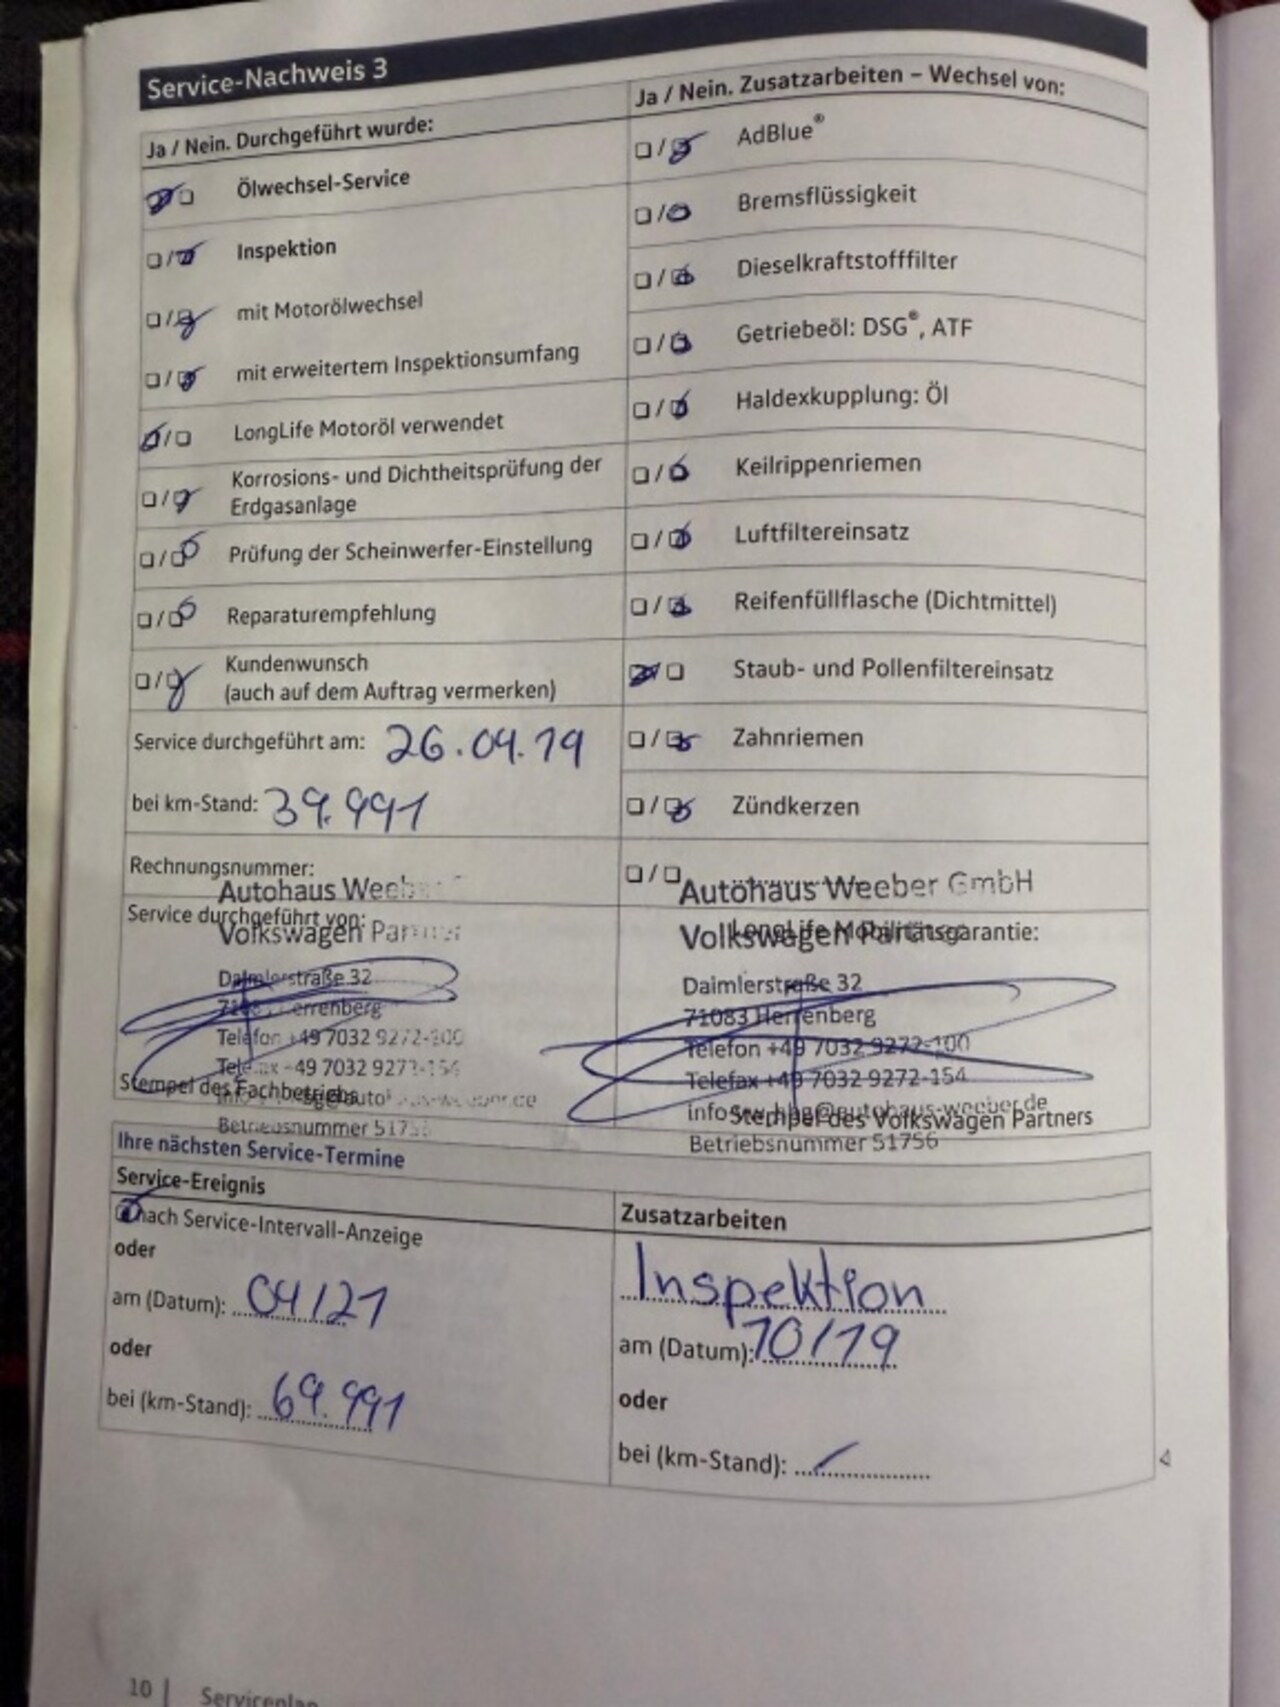 Service-Nachweis 3
Ja / Nein. Durchgeführt wurde:
Ölwechsel-Service
Inspektion
mit Motorölwechsel
mit erweitertem Inspektionsumfang
LongLife Motoröl verwendet
Korrosions- und Dichtheitsprüfung der
Erdgasanlage
Prüfung der Scheinwerfer-Einstellung
Reparaturempfehlung
Kundenwunsch
(auch auf dem Auftrag vermerken)
Service durchgeführt am: 26.04.19
bei km-Stand: 39.991
Rechnungsnummer:
Autohaus Weeber
Service durchgeführt von:
Volkswagen Partner
Daimlerstraße 32
71083 Herrenberg
Telefon +49 7032 9272-100
Telefax +49 7032 9272-154
Stempel des Fachbetriebs
Betriebsnummer 51756
Ja / Nein. Zusatzarbeiten – Wechsel von:
AdBlue®
Bremsflüssigkeit
Dieselkraftstofffilter
Getriebeöl: DSG®, ATF
Haldexkupplung: Öl
Keilrippenriemen
Luftfiltereinsatz
Reifenfüllflasche (Dichtmittel)
Staub- und Pollenfiltereinsatz
Zahnriemen
Zündkerzen
Autohaus Weeber GmbH
LongLife Mobilitätsgarantie:
Volkswagen Partner
Daimlerstraße 32
71083 Herrenberg
Telefon +49 7032 9272-100
Telefax +49 7032 9272-154
Stempel des Volkswagen Partners
Betriebsnummer 51756
Ihre nächsten Service-Termine
Service-Ereignis
nach Service-Intervall-Anzeige
oder
am (Datum): 04/21
oder
bei (km-Stand): 69.991
Zusatzarbeiten
Inspektion
am (Datum): 10/19
oder
bei (km-Stand):
10 | Serviceplan